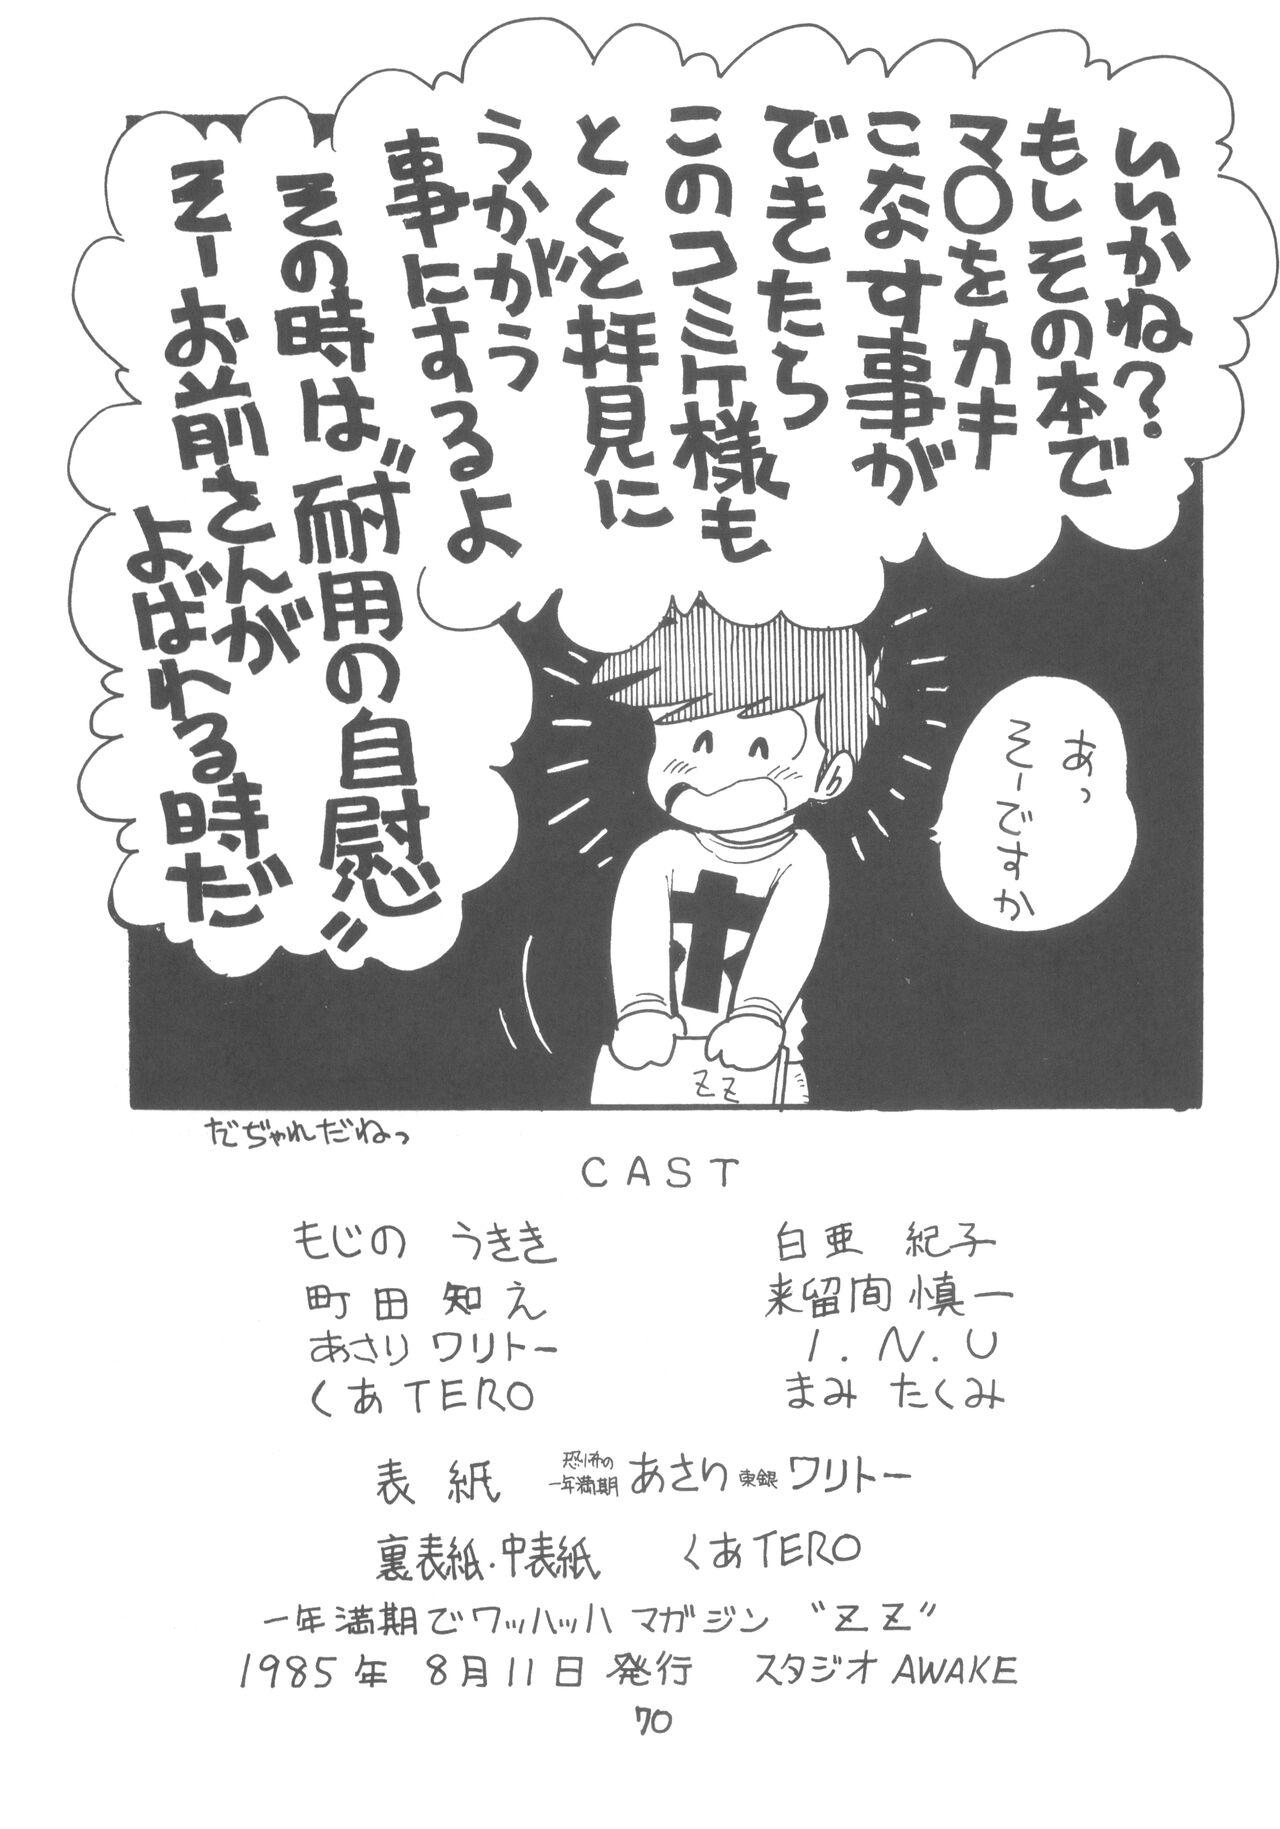 いいかね?
もしその本で
マ〇をカキ
こなす事が
できたら
このコミケ様も
とくと拝見に
うかがう
事にするよ
その時は〝耐用の自慰〟
そーお前さんが
よばれる時だ
あっ
そーですか
ZZ
だぢゃれだねっ
CAST
もじの うきき
白亜 紀子
町田 知え
来留間 慎一
あさり ワリトー
I.N.U
くあTERO
まみ たくみ
表紙 恐怖の一年満期 あさり 東銀 ワリトー
裏表紙・中表紙 くあTERO
一年満期でワッハッハ マガジン 〝ZZ〟
1985年 8月11日 発行 スタジオ AWAKE
70